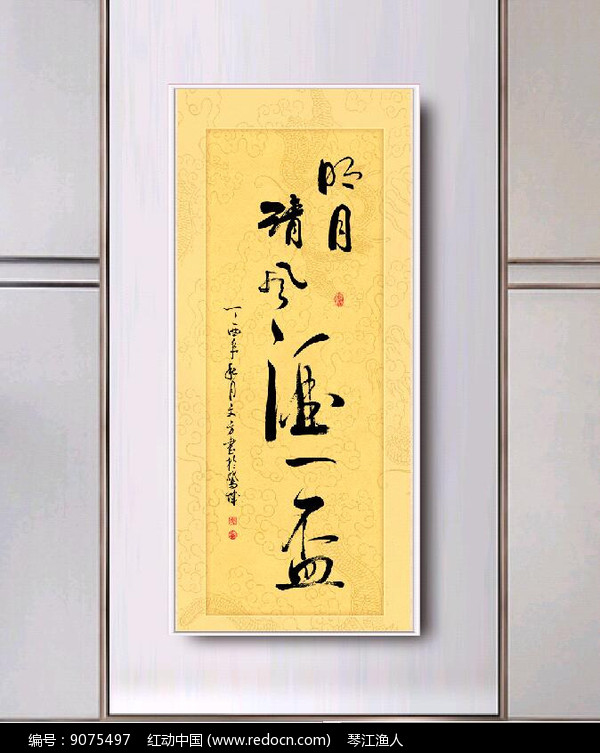 明月
清风酒一盃
丁酉年秋月文方書於城
编号：9075497 红动中国 (www.redocn.com) 琴江渔人